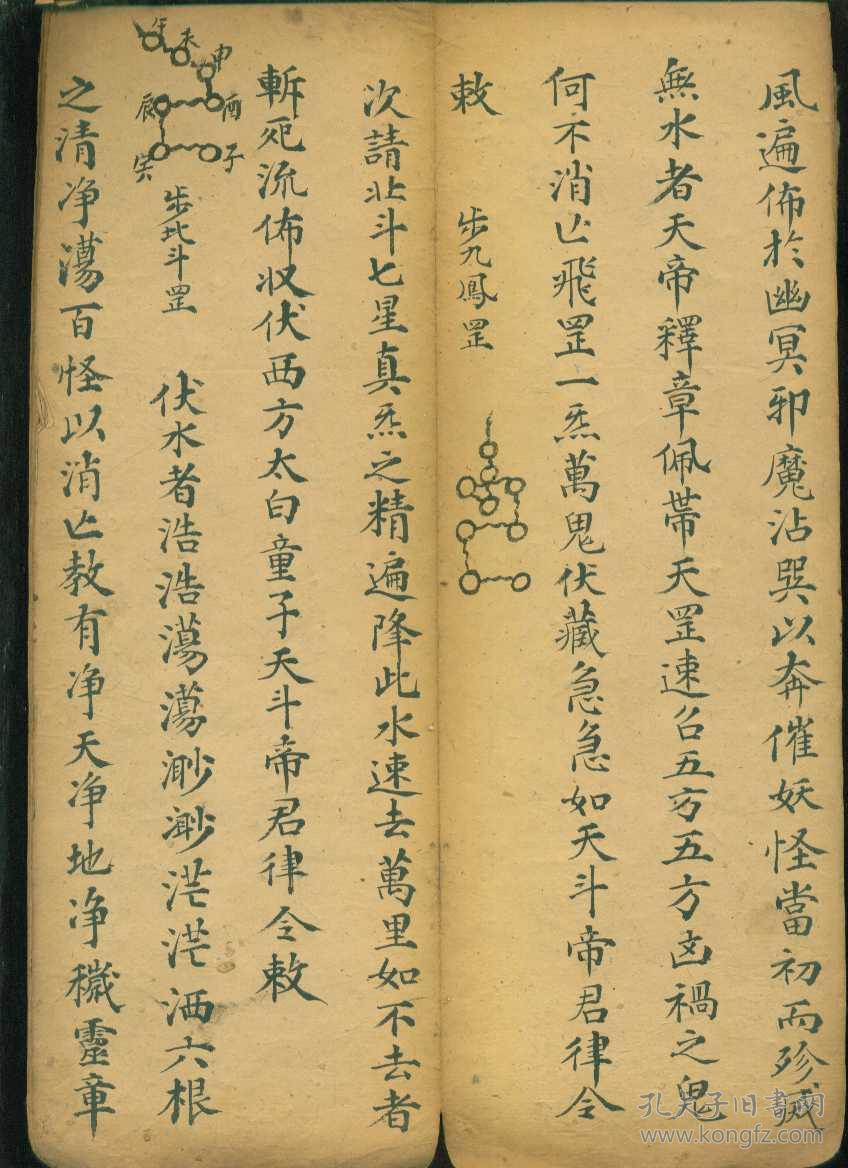 風遍佈於幽冥邪魔沾巽以奔催妖怪當初而殄滅
無水者天帝釋章佩帶天罡速召五方五方凶禍之鬼
何不消亾飛罡一炁萬鬼伏藏急急如天斗帝君律令
敕
步九鳳罡
次請北斗七星真炁之精遍降此水速去萬里如不去者
斬死流佈収伏西方太白童子天斗帝君律令敕
午
未
申
酉
辰
子
寅
步北斗罡
伏水者浩浩蕩蕩渺渺茫茫洒六根
之清净蕩百怪以消亾教有净天净地净穢靈章
孔夫子旧书网
www.kongfz.com